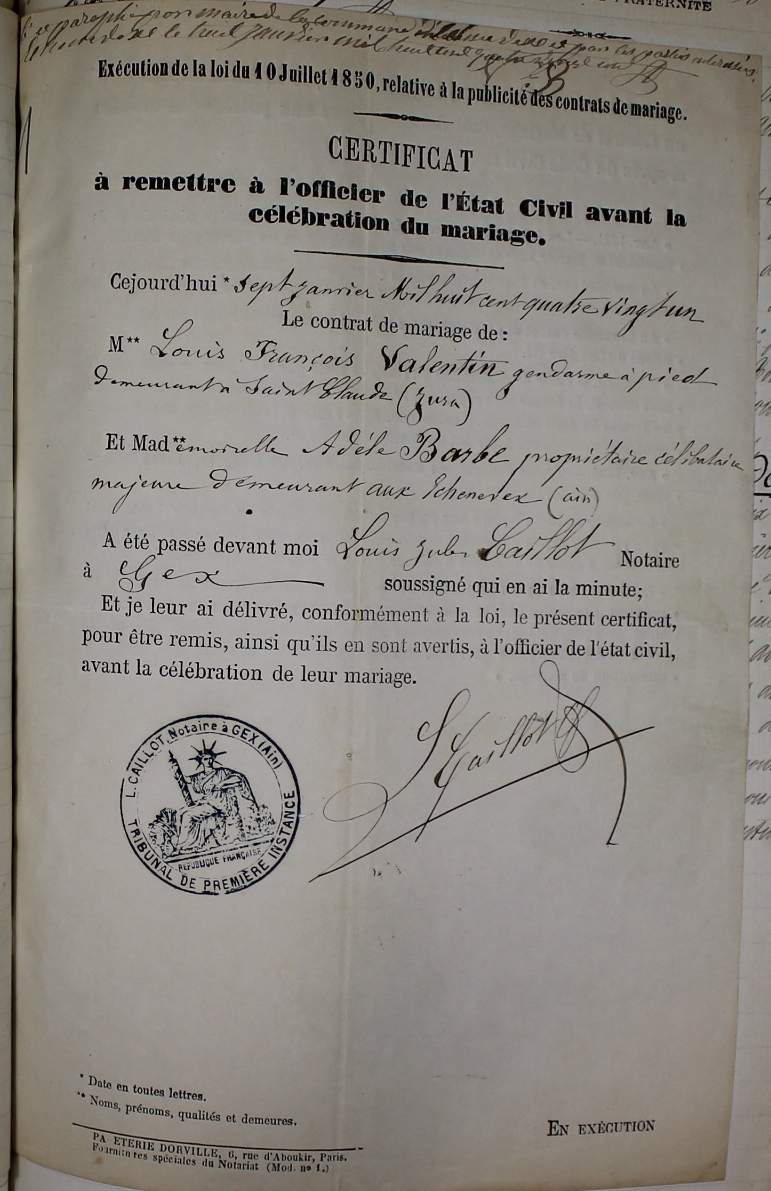 FRATERNITÉ
paraphé par maire de la commune et par les parties
le huit janvier mil huit cent quatre vingt un
Exécution de la loi du 10 Juillet 1850, relative à la publicité des contrats de mariage.
CERTIFICAT
à remettre à l'officier de l'État Civil avant la
célébration du mariage.
Cejourd'hui * Sept Janvier Mil huit cent quatre vingt un
Le contrat de mariage de :
M** Louis François Valentin gendarme à pied
demeurant à Saint Claude (Jura)
Et Mad**emoiselle Adéle Barbe propriétaire célibataire
majeure demeurant aux Echenevex (ain)
A été passé devant moi Louis Jules Caillot Notaire
à Gex soussigné qui en ai la minute;
Et je leur ai délivré, conformément à la loi, le présent certificat,
pour être remis, ainsi qu'ils en sont avertis, à l'officier de l'état civil,
avant la célébration de leur mariage.
L Caillot
L. CAILLOT, Notaire à GEX (Ain)
RÉPUBLIQUE FRANÇAISE
TRIBUNAL DE PREMIÈRE INSTANCE
* Date en toutes lettres.
** Noms, prénoms, qualités et demeures.
EN EXÉCUTION
PA ETERIE DORVILLE, 6, rue d'Aboukir, Paris.
Fournitures spéciales du Notariat (Mod. nº 1.)